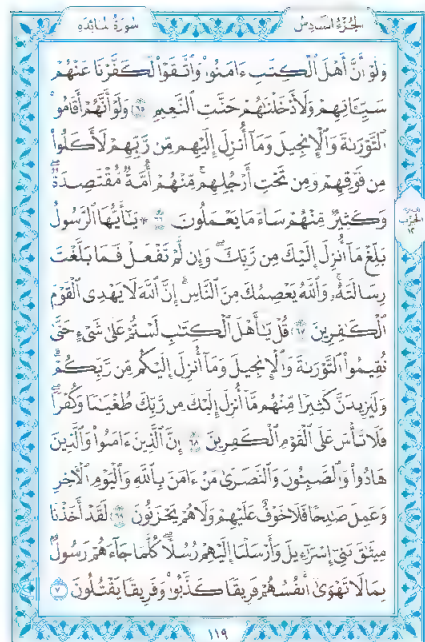 سورة المائدة
الجزء السادس
وَلَوْ أَنَّ أَهْلَ ٱلْكِتَٰبِ ءَامَنُوا۟ وَٱتَّقَوْا۟ لَكَفَّرْنَا عَنْهُمْ
سَيِّـَٔاتِهِمْ وَلَأَدْخَلْنَٰهُمْ جَنَّٰتِ ٱلنَّعِيمِ ٦٥ وَلَوْ أَنَّهُمْ أَقَامُوا۟
ٱلتَّوْرَىٰةَ وَٱلْإِنجِيلَ وَمَآ أُنزِلَ إِلَيْهِم مِّن رَّبِّهِمْ لَأَكَلُوا۟
مِن فَوْقِهِمْ وَمِن تَحْتِ أَرْجُلِهِم ۚ مِّنْهُمْ أُمَّةٌ مُّقْتَصِدَةٌ ۖ
وَكَثِيرٌ مِّنْهُمْ سَآءَ مَا يَعْمَلُونَ ٦٦ ۞ يَٰٓأَيُّهَا ٱلرَّسُولُ
بَلِّغْ مَآ أُنزِلَ إِلَيْكَ مِن رَّبِّكَ ۖ وَإِن لَّمْ تَفْعَلْ فَمَا بَلَّغْتَ
رِسَالَتَهُۥ ۚ وَٱللَّهُ يَعْصِمُكَ مِنَ ٱلنَّاسِ ۗ إِنَّ ٱللَّهَ لَا يَهْدِى ٱلْقَوْمَ
ٱلْكَٰفِرِينَ ٦٧ قُلْ يَٰٓأَهْلَ ٱلْكِتَٰبِ لَسْتُمْ عَلَىٰ شَىْءٍ حَتَّىٰ
تُقِيمُوا۟ ٱلتَّوْرَىٰةَ وَٱلْإِنجِيلَ وَمَآ أُنزِلَ إِلَيْكُم مِّن رَّبِّكُمْ ۗ
وَلَيَزِيدَنَّ كَثِيرًا مِّنْهُم مَّآ أُنزِلَ إِلَيْكَ مِن رَّبِّكَ طُغْيَٰنًا وَكُفْرًا ۖ
فَلَا تَأْسَ عَلَى ٱلْقَوْمِ ٱلْكَٰفِرِينَ ٦٨ إِنَّ ٱلَّذِينَ ءَامَنُوا۟ وَٱلَّذِينَ
هَادُوا۟ وَٱلصَّٰبِـُٔونَ وَٱلنَّصَٰرَىٰ مَنْ ءَامَنَ بِٱللَّهِ وَٱلْيَوْمِ ٱلْءَاخِرِ
وَعَمِلَ صَٰلِحًا فَلَا خَوْفٌ عَلَيْهِمْ وَلَا هُمْ يَحْزَنُونَ ٦٩ لَقَدْ أَخَذْنَا
مِيثَٰقَ بَنِىٓ إِسْرَٰٓءِيلَ وَأَرْسَلْنَآ إِلَيْهِمْ رُسُلًا ۖ كُلَّمَا جَآءَهُمْ رَسُولٌۢ
بِمَا لَا تَهْوَىٰٓ أَنفُسُهُمْ فَرِيقًا كَذَّبُوا۟ وَفَرِيقًا يَقْتُلُونَ ٧٠
الحزب
١٢
١١٩